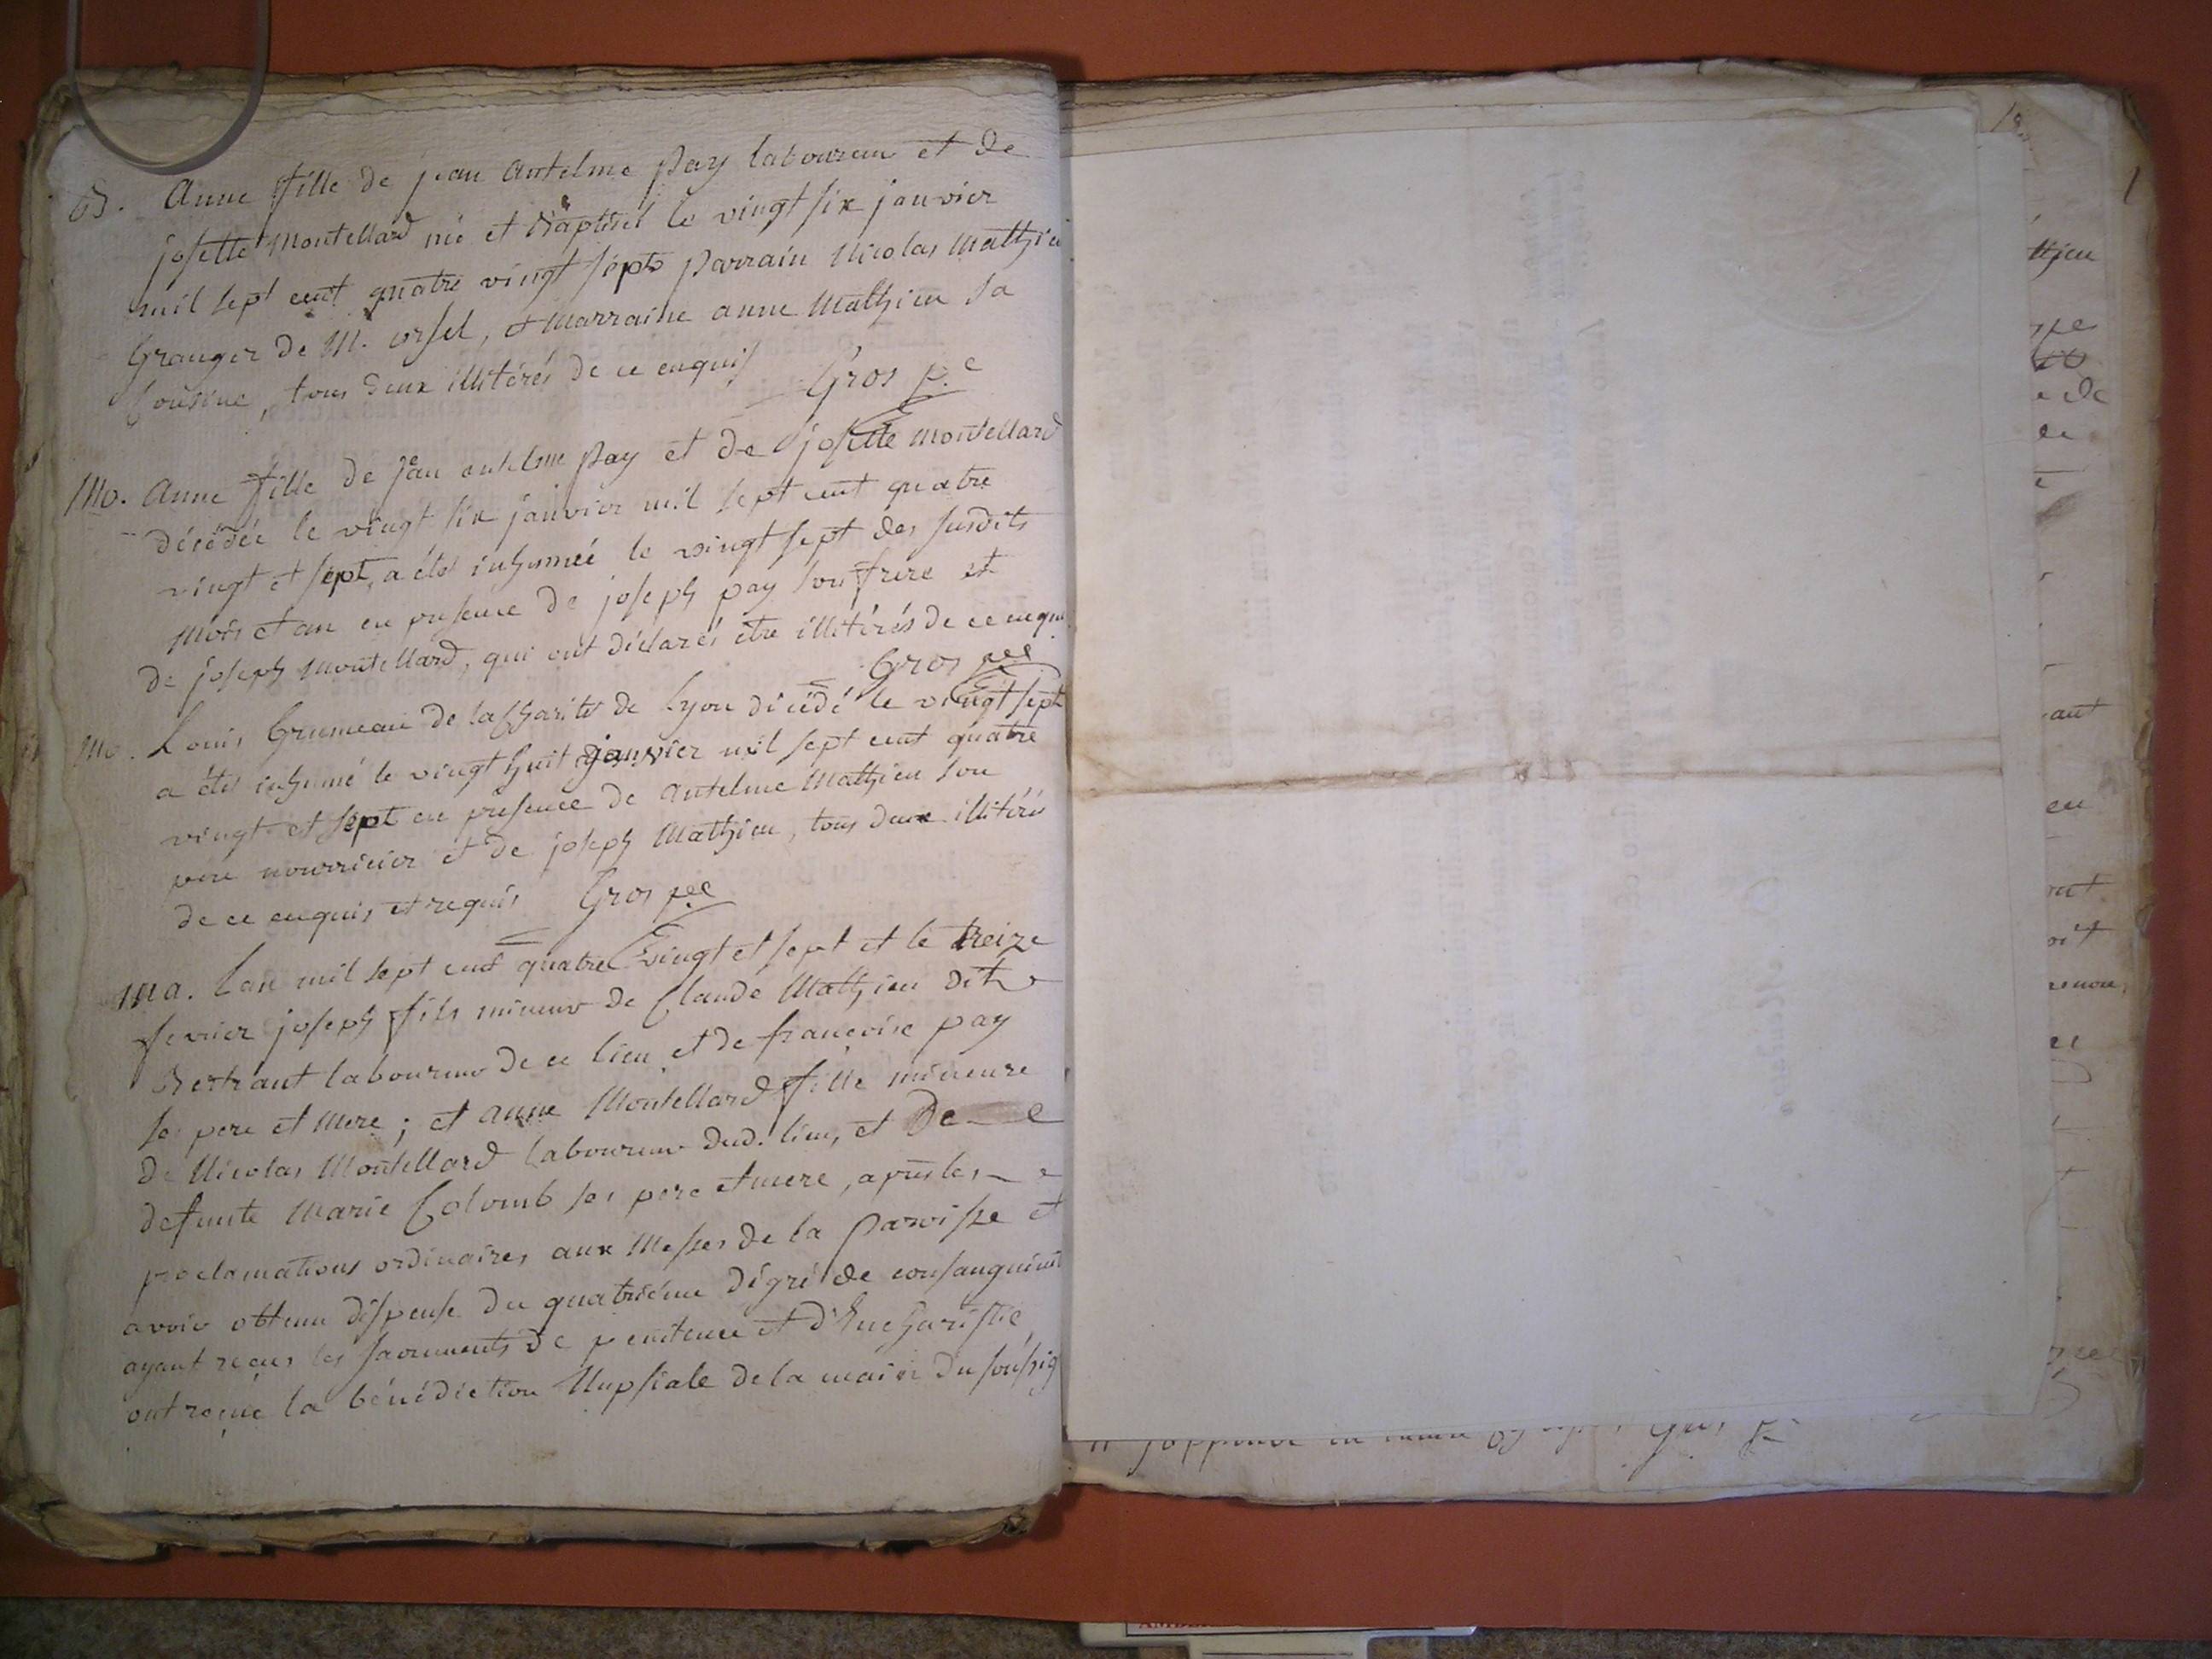 B. Anne fille de jean Antelme pay laboureur et de
josette Montellard née et Baptisé le vingt six janvier
mil sept cent quatre vingt sépt parrain Nicolas Mathieu
Granger de M. orsel, et Marraine anne Mathieu sa
Cousine, tous deux illitérés de ce enquis Gros p.e
Mo. Anne fille de jean antelme pay et de josette Montellard
décédée le vingt six janvier mil sept cent quatre
vingt et sépt, a été inhumée le vingt sept des susdits
Mois et an en presence de joseph pay son frere et
de joseph Montellard, qui ont déclarés etre illitérés de ce enquis
Gros p.e
Mo. Louis Grumeau de la Charité de Lyon décédé le vingt sept
a été inhumé le vingt huit janvier mil sept cent quatre
vingt et sépt en presence de Antelme Mathieu son
pere nourricier et de joseph Mathieu, tous deux illitérés
de ce enquis et requis Gros p.e
Ma. Lan mil sept cent quatre vingt et sept et le treize
fevrier joseph fils mineur de Claude Mathieu dit
Bertrant laboureur de ce lieu et de françoise pay
ses pere et Mere ; et anne Montellard fille mineure
de Nicolas Montellard laboureur dud. lieu, et De
defunte Marie Colomb ses pere et mere, apres les
proclamations ordinaires aux Messes de la paroisse et
avoir obtenu dispense du quatriéme dégré de consanguinit
ayant reçus les sacrements de penitence et d'Eucharistie
ont reçue la bénédiction Nupsiale de la main du soussig
thieu
e de
ant
en